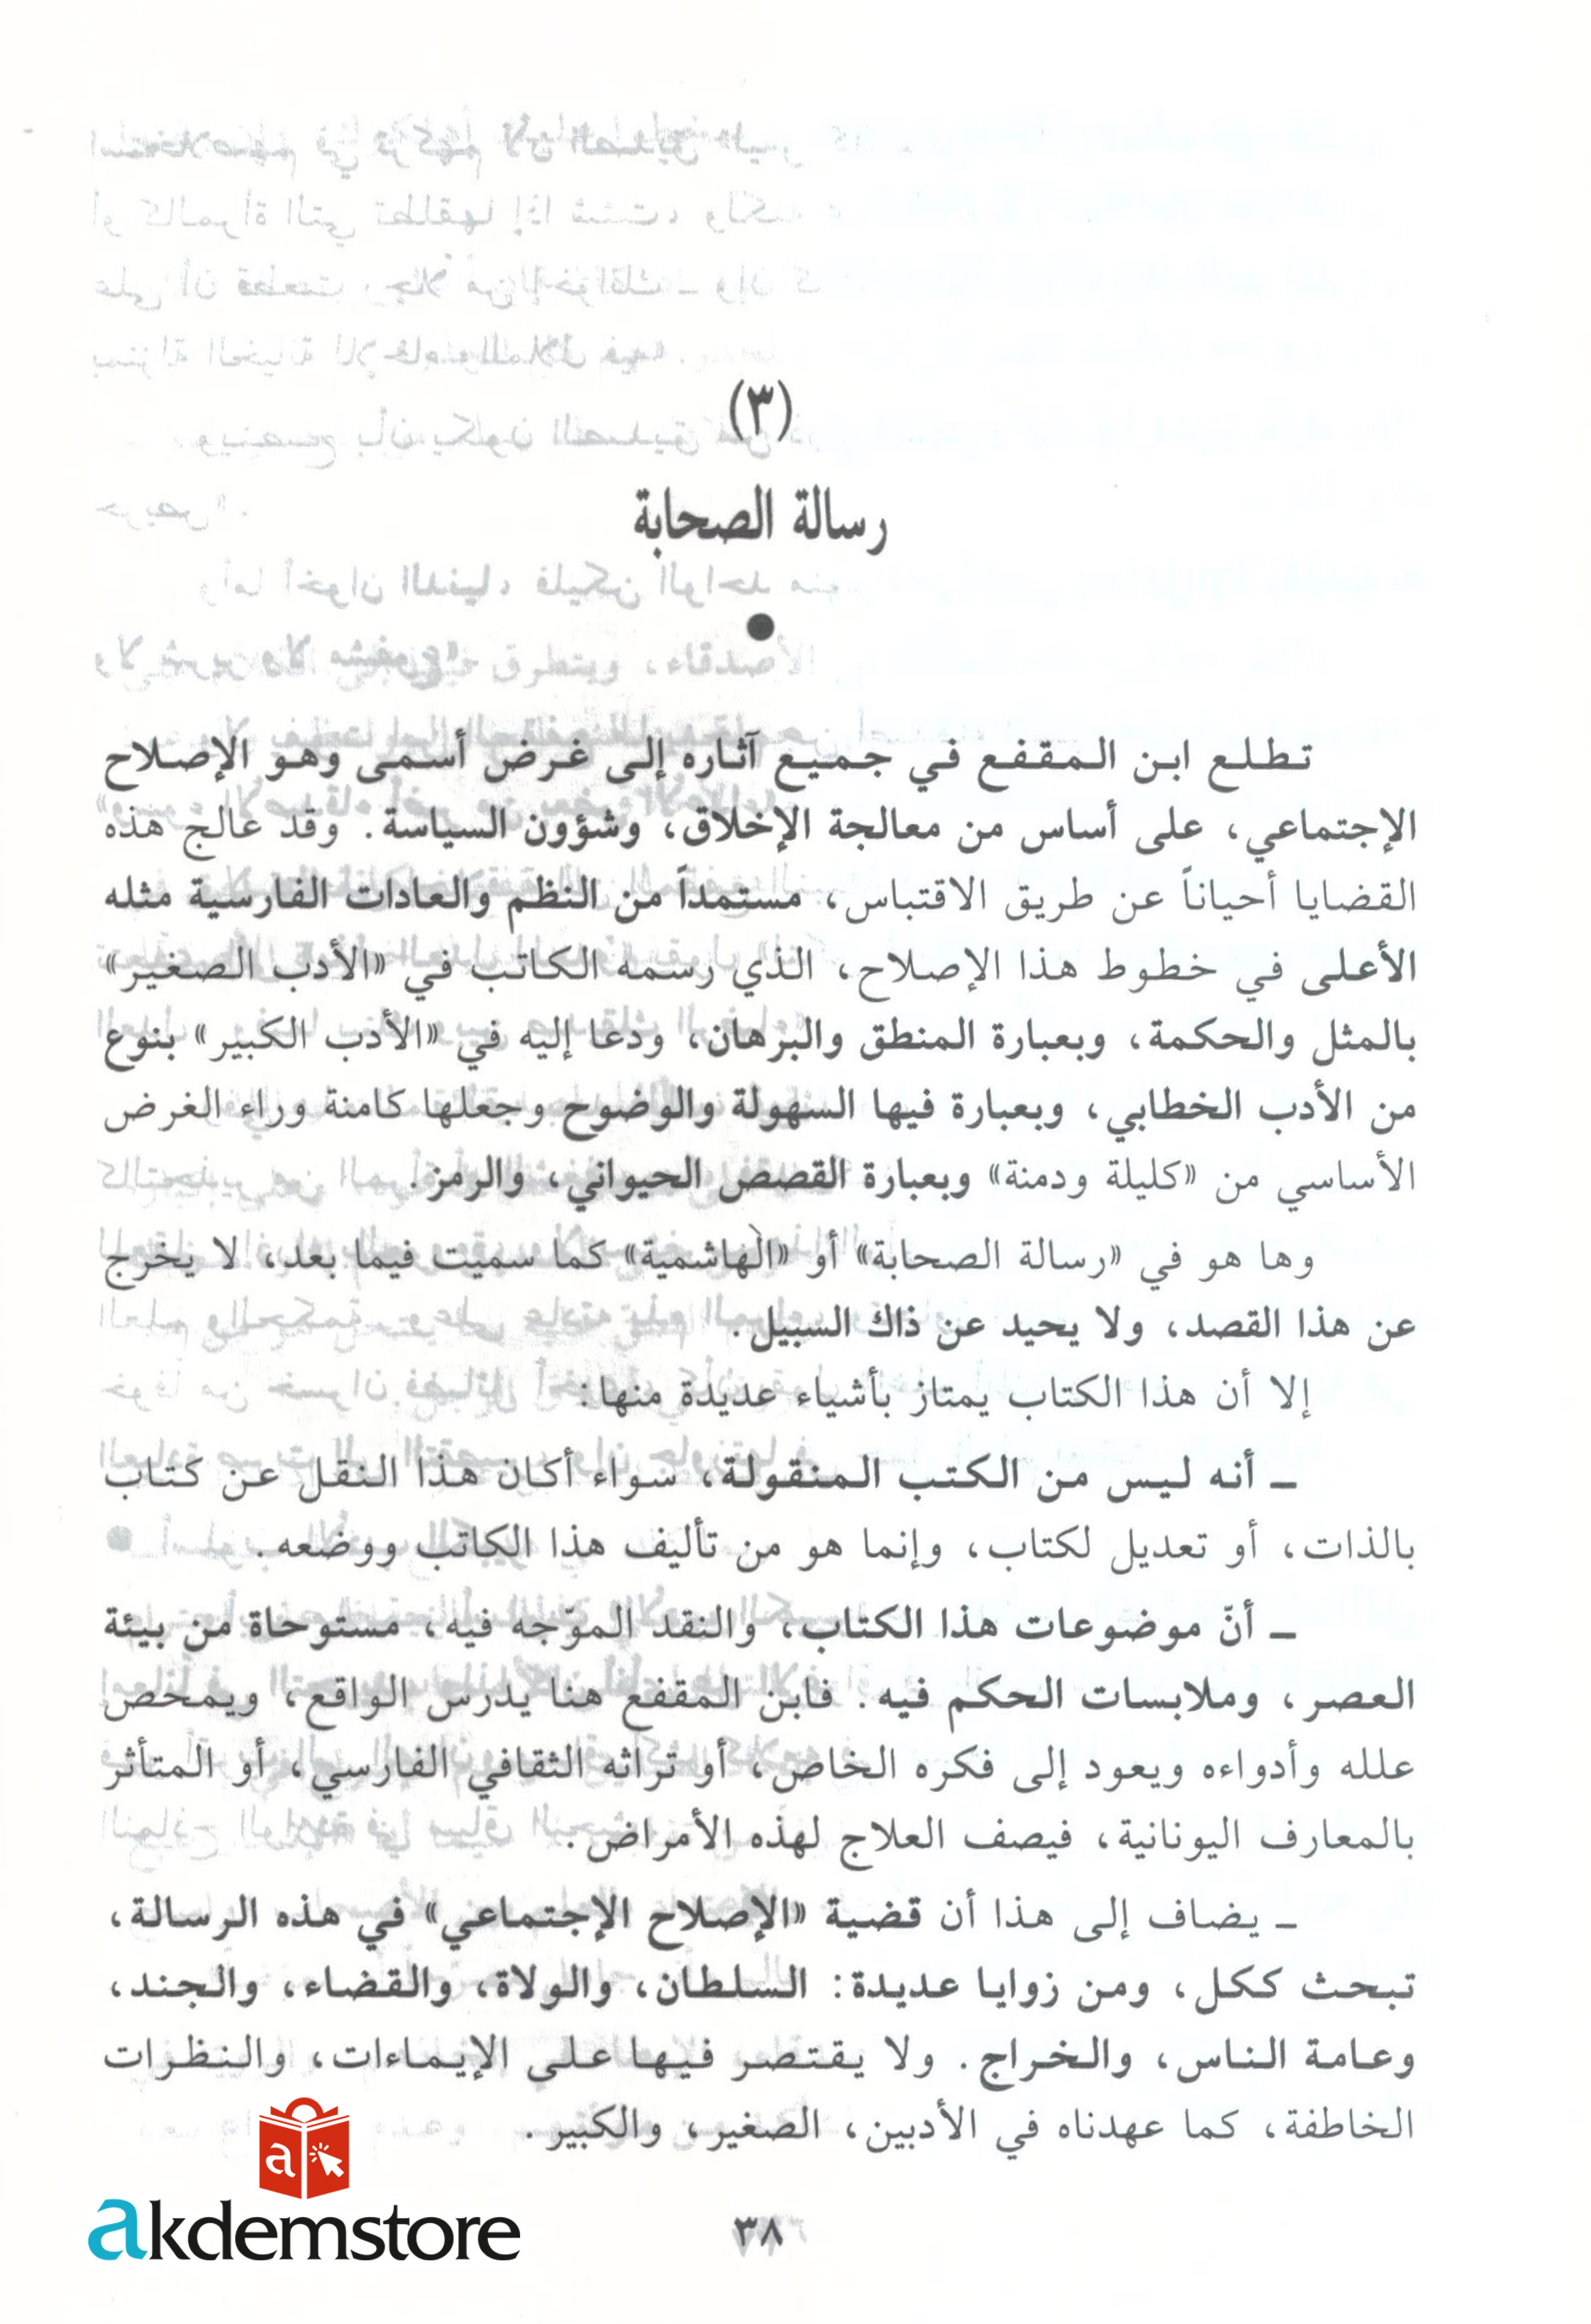 (٣)
رسالة الصحابة
●
تطلع ابن المقفع في جميع آثاره إلى غرض أسمى وهو الإصلاح
الإجتماعي، على أساس من معالجة الإخلاق، وشؤون السياسة. وقد عالج هذه
القضايا أحياناً عن طريق الاقتباس، مستمداً من النظم والعادات الفارسية مثله
الأعلى في خطوط هذا الإصلاح، الذي رسمه الكاتب في «الأدب الصغير»
بالمثل والحكمة، وبعبارة المنطق والبرهان، ودعا إليه في «الأدب الكبير» بنوع
من الأدب الخطابي، وبعبارة فيها السهولة والوضوح وجعلها كامنة وراء الغرض
الأساسي من «كليلة ودمنة» وبعبارة القصص الحيواني، والرمز.
وها هو في «رسالة الصحابة» أو «الهاشمية» كما سميت فيما بعد، لا يخرج
عن هذا القصد، ولا يحيد عن ذاك السبيل.
إلا أن هذا الكتاب يمتاز بأشياء عديدة منها:
ـ أنه ليس من الكتب المنقولة، سواء أكان هذا النقل عن كتاب
بالذات، أو تعديل لكتاب، وإنما هو من تأليف هذا الكاتب ووضعه.
ـ أنّ موضوعات هذا الكتاب، والنقد الموّجه فيه، مستوحاة من بيئة
العصر، وملابسات الحكم فيه. فابن المقفع هنا يدرس الواقع، ويمحص
علله وأدواءه ويعود إلى فكره الخاص، أو تراثه الثقافي الفارسي، أو المتأثر
بالمعارف اليونانية، فيصف العلاج لهذه الأمراض.
ـ يضاف إلى هذا أن قضية «الإصلاح الإجتماعي» في هذه الرسالة،
تبحث ككل، ومن زوايا عديدة: السلطان، والولاة، والقضاء، والجند،
وعامة الناس، والخراج. ولا يقتصر فيها على الإيماءات، والنظرات
الخاطفة، كما عهدناه في الأدبين، الصغير، والكبير.
a
akdemstore
٣٨